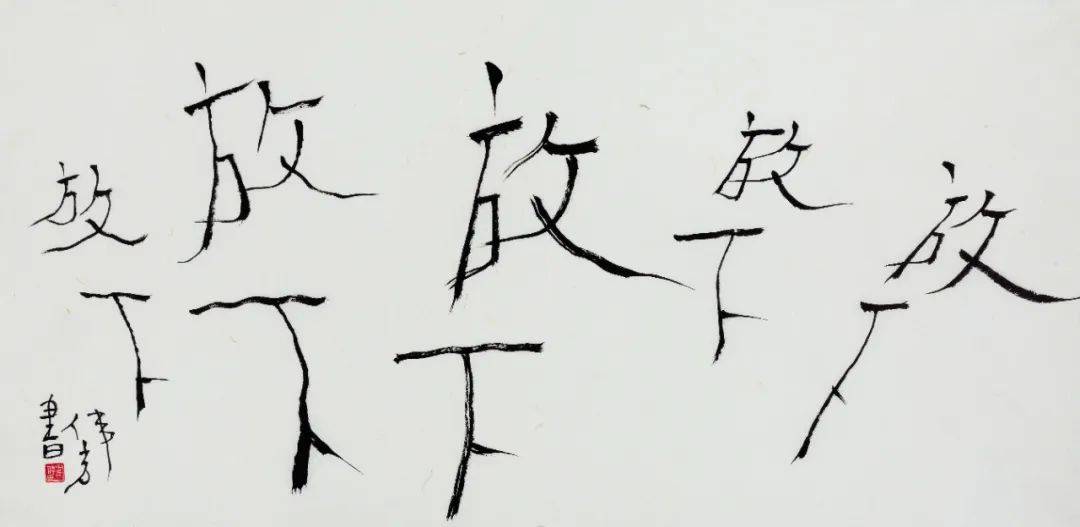 放下
放下
放下
放下
放下
伟方
書